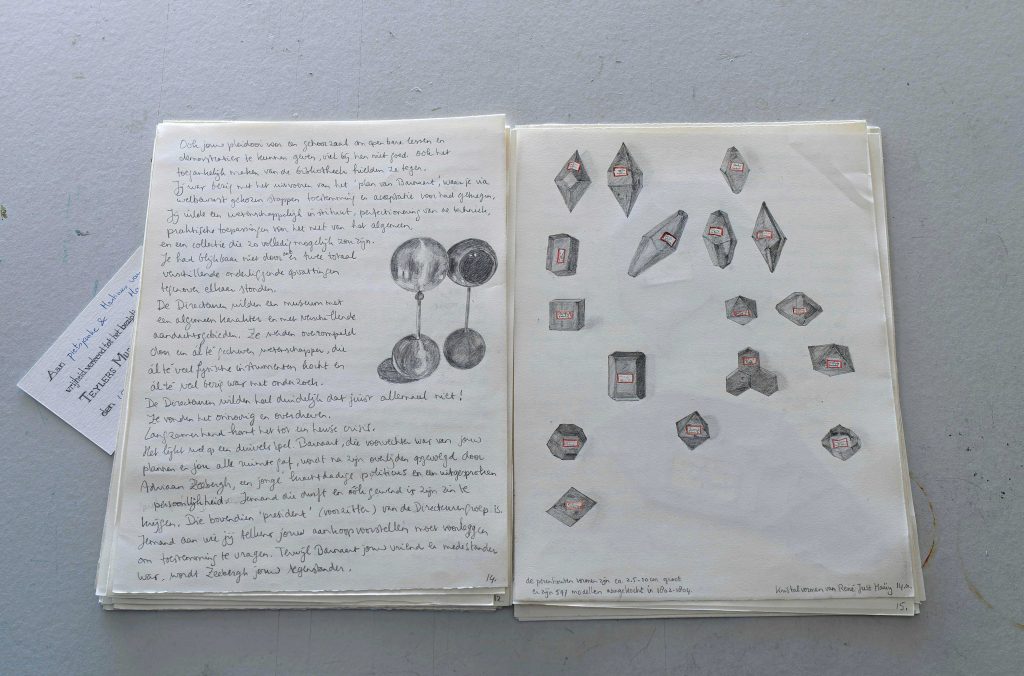 Ook jouw pleidooi voor een gehoorzaal om openbare lessen en
demonstraties te kunnen geven, viel bij hen niet goed. Ook het
toegankelijk maken van de bibliotheek hielden ze tegen.
Jij was bezig met het uitvoeren van het 'plan van Barnaart', waar je via
welbewust gekozen stappen toestemming en acceptatie voor had gekregen.
Jij wilde een wetenschappelijk instituut, perfectionering van de techniek,
praktische toepassingen voor het nut van het algemeen,
en een collectie die zo volledig mogelijk zou zijn.
Je had blijkbaar niet door dat er twee totaal
verschillende onderliggende opvattingen
tegenover elkaar stonden.
De Directeuren wilden een museum met
een algemeen karakter en met verschillende
aandachtsgebieden. Ze werden overrompeld
door een ál te gedreven wetenschapper, die
ál te veel fysische instrumenten kocht en
ál te veel bezig was met onderzoek.
De Directeuren wilden heel duidelijk dat juist allemaal niet!
Ze vonden het onnodig en overdreven.
Langzamerhand komt het tot een heuse crisis.
Het lijkt wel op een duivels spel. Barnaart, die voorvechter was van jouw
plannen en jou alle ruimte gaf, wordt na zijn overlijden opgevolgd door
Adriaan Zeebergh, een jonge krachtdadige politicus en een uitgesproken
persoonlijkheid. Iemand die durft en óók gewend is zijn zin te
krijgen. Die bovendien 'president' (voorzitter) van de Directeurengroep is.
Iemand aan wie jij telkens jouw aankoopvoorstellen moet voorleggen
om toestemming te vragen. Terwijl Barnaart jouw vriend en medestander
was, wordt Zeebergh jouw tegenstander.
14.
Aan
vrijheid verleend tot het bezichti
TEYLERS MU
den
de perenhouten vormen zijn ca. 2.5-10 cm groot
er zijn 597 modellen aangekocht in 1802-1804.
Kristalvormen van René Just Haüy 14.a.
15.